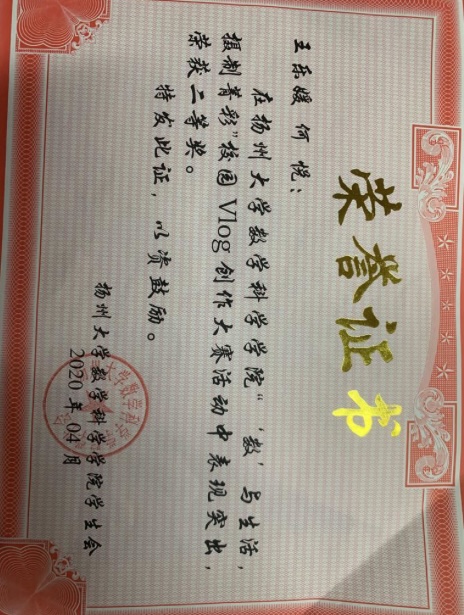 荣誉证书
王乐媛 何悦：
在扬州大学数学科学学院“‘数’与生活，
摄制菁彩”校园Vlog创作大赛活动中表现突出，
荣获二等奖。
特发此证，以资鼓励。
扬州大学数学科学学院学生会
2020年04月